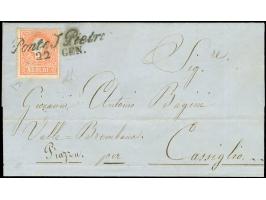 Ponte S. Pietro
22 GEN.
Sig.re
Giovanni Antonio Bagini
Valle = Brembana
Piazza per Cassiglio